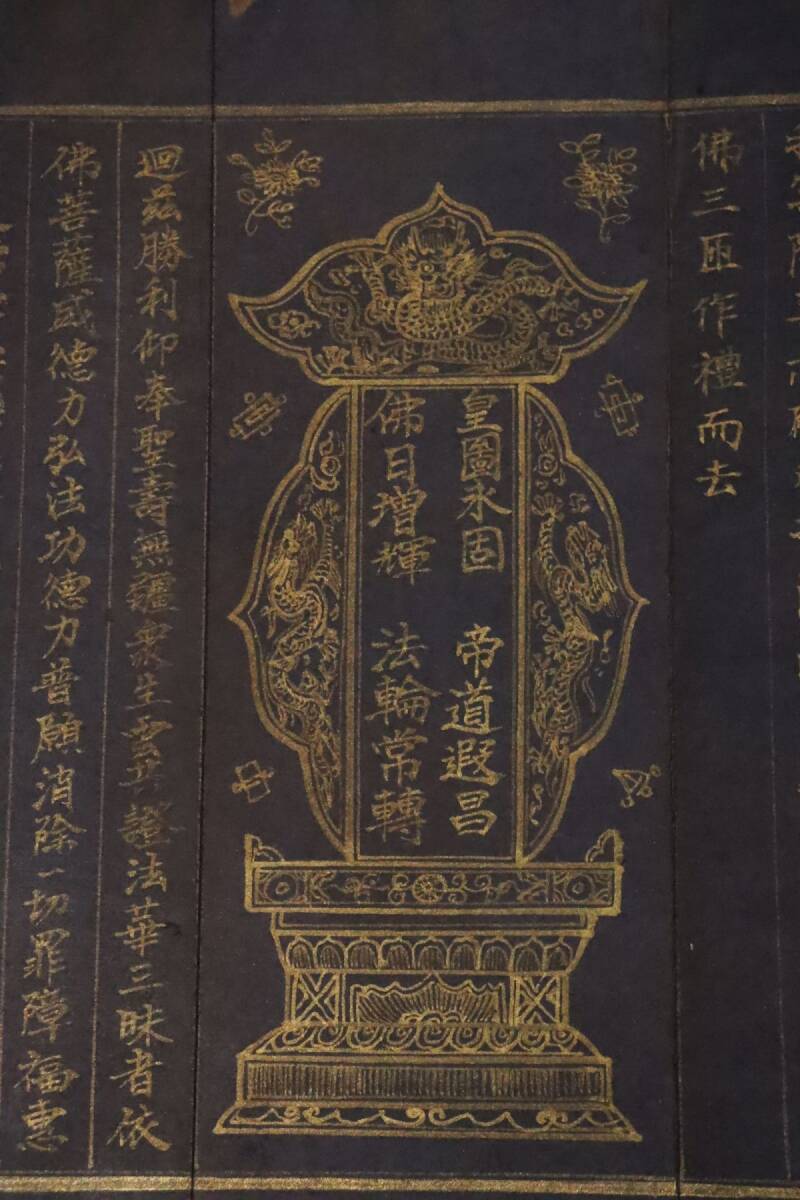 佛三匝作禮而去
皇圖永固 帝道遐昌
佛日增輝 法輪常轉
迴茲勝利仰奉聖壽無疆衆生雲共證法華三昧者依
佛菩薩威德力弘法功德力普願消除一切罪障福惠